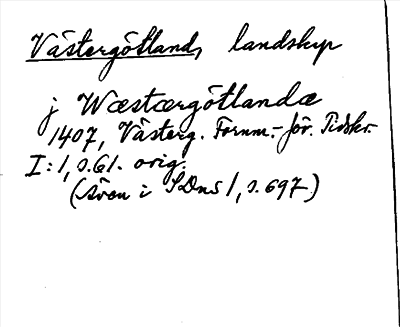 Västergötland, landskap
j Wæstærgötlandæ
1407, Västerg. Fornm.-för. Tidskr.
I:1, s. 61. orig.
(även i SDns 1, s. 697)